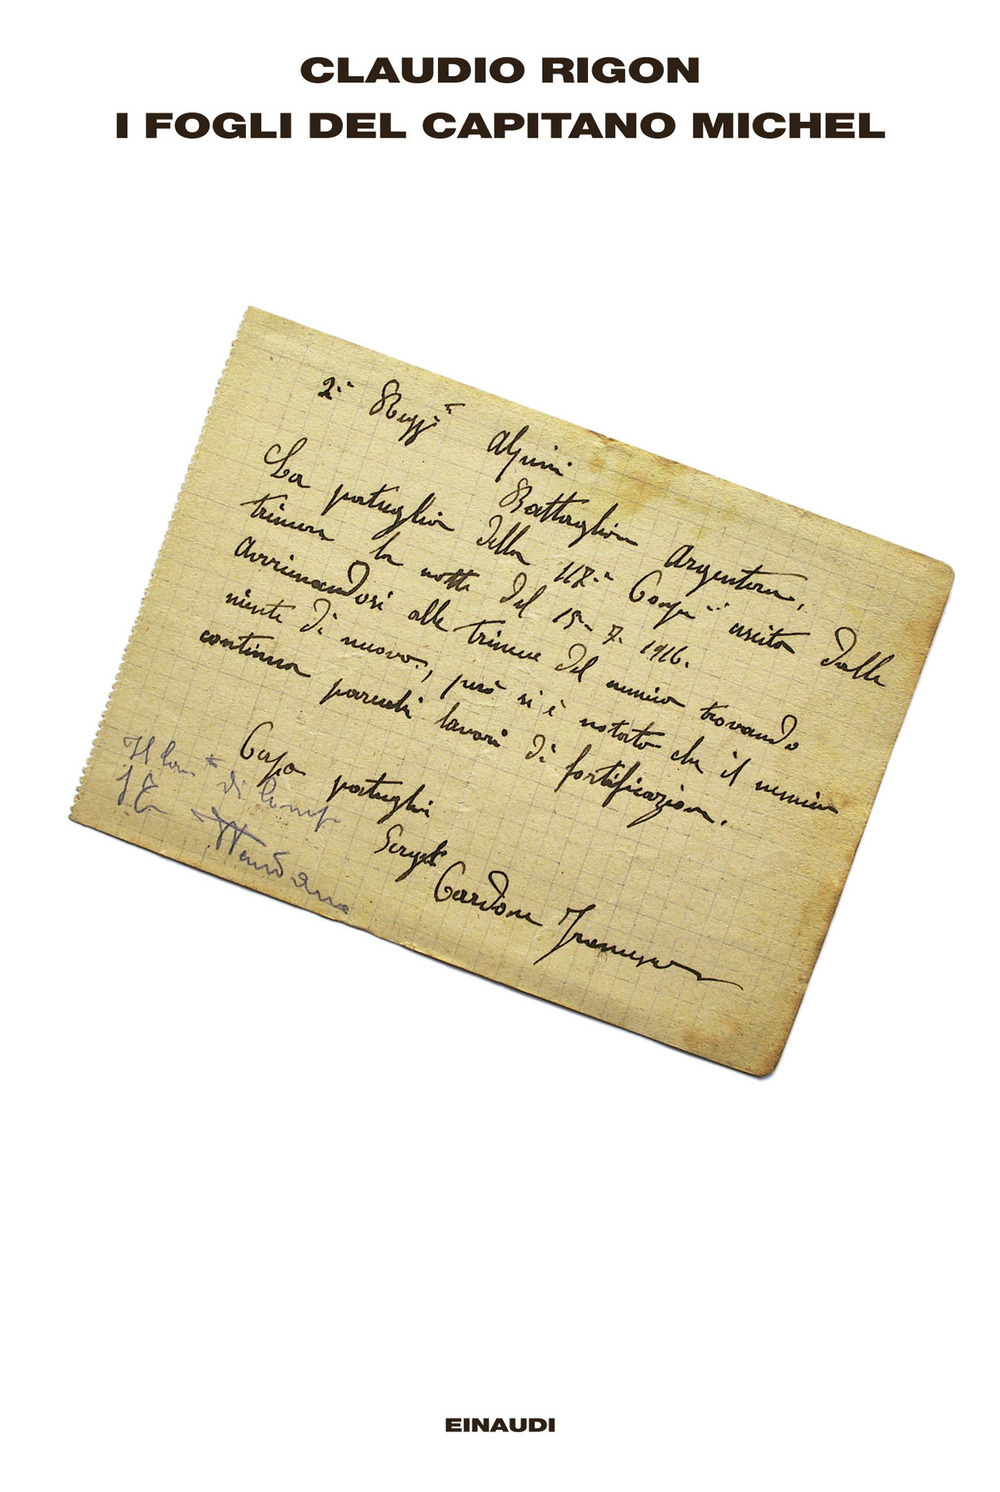 CLAUDIO RIGON
I FOGLI DEL CAPITANO MICHEL
2º Reggtº Alpini
Battaglion Argentera,
La pattuglia della 117ª Compª uscita dalla
trincea la notte del 15-7-1916.
Avvicinandosi alle trincee del nemico trovando
niente di nuovo, però si è notato che il nemico
continua parecchi lavori di fortificazion.
Capo pattuglia
Sergte
Cardone Francesco
Il Comte di Comp
EINAUDI